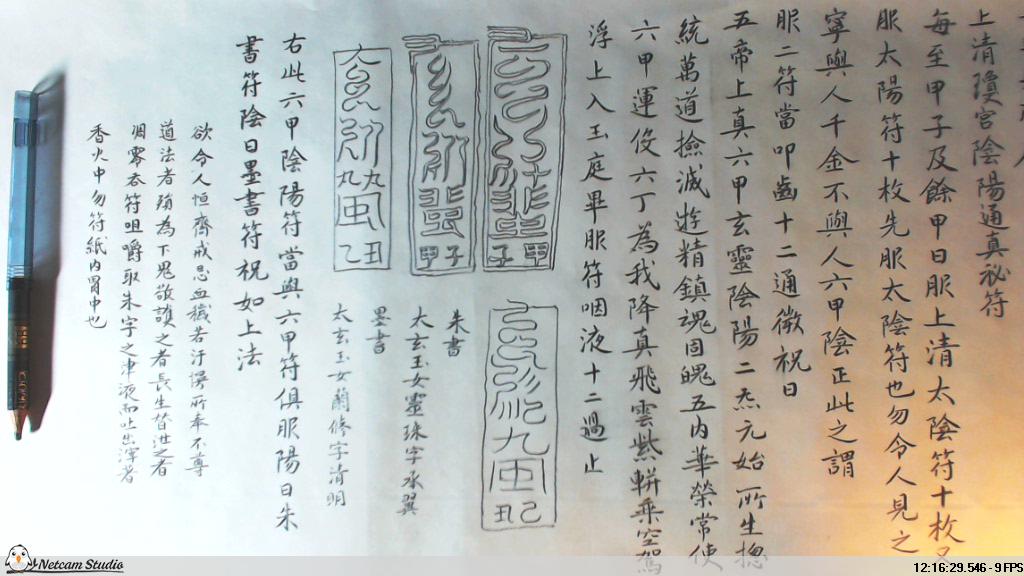 上清瓊宮陰陽通真祕符
每至甲子及餘甲日服上清太陰符十枚又
服太陽符十枚先服太陰符也勿令人見之
寧與人千金不與人六甲陰正此之謂
服二符當叩齒十二通微祝曰
五帝上真六甲玄靈陰陽二炁元始所生摠
統萬道撿滅遊精鎮魂固魄五內華榮常使
六甲運役六丁為我降真飛雲紫軿乘空駕
浮上入玉庭畢服符咽液十二過止
子甲
甲子
丑己
乙丑
朱書
太玄玉女靈珠字承翼
墨書
太玄玉女蘭修字清明
右此六甲陰陽符當與六甲符俱服陽日朱
書符陰日墨書符祝如上法
欲令人恒齋戒忌血穢若汙慢所奉不專
道法者須為下鬼敬護之者長生督泄之者
凋零吞符咀嚼取朱字之津液而吐出滓著
香火中勿符紙內胃中也
Netcam Studio
12:16:29.546 - 9 FPS